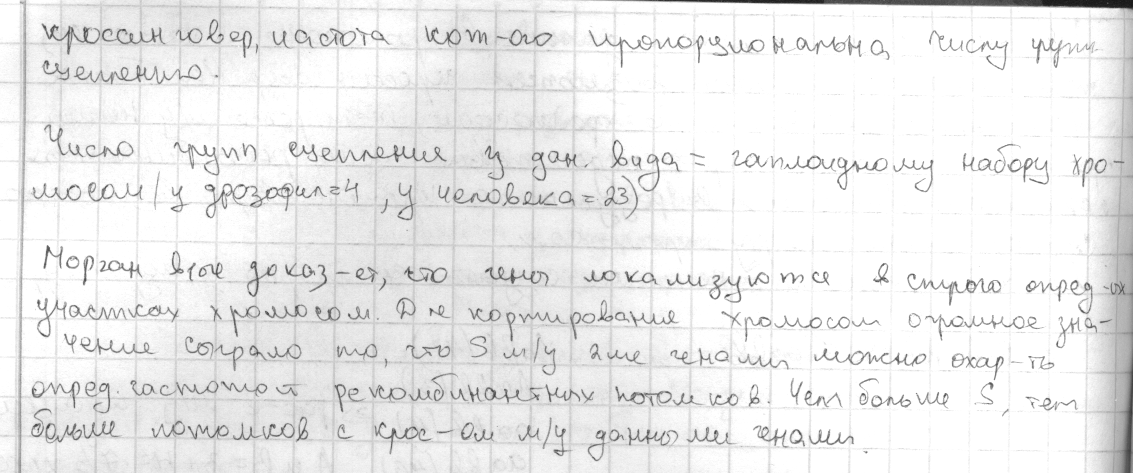 кроссинговер, частота кот-ого пропорциональна числу групп
сцеплению.
Число групп сцепления у дан. вида = гаплоидному набору хро-
мосом / у дрозофил=4 , у человека = 23)
Морган вые доказ-ет, что гены локализуются в строго опред-ых
участках хромосом. Для картирование хромосом огромное зна-
чение сыграло то, что S м/у 2ме генами можно охар-ть
опред. частотой рекомбинантных потомков. Чем больше S, тем
больше потомков с крос-ом м/у данными генами.